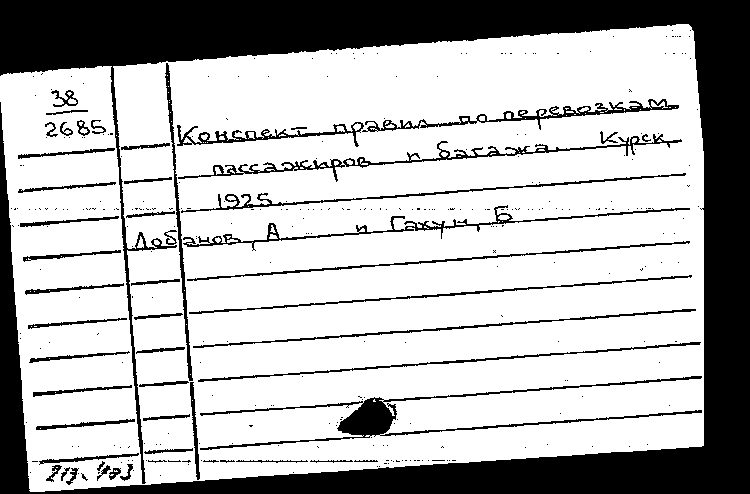 38
2685
Конспект правил по перевозкам
пассажиров и багажа. Курск,
1925.
Лобанов, А и Гахун, Б